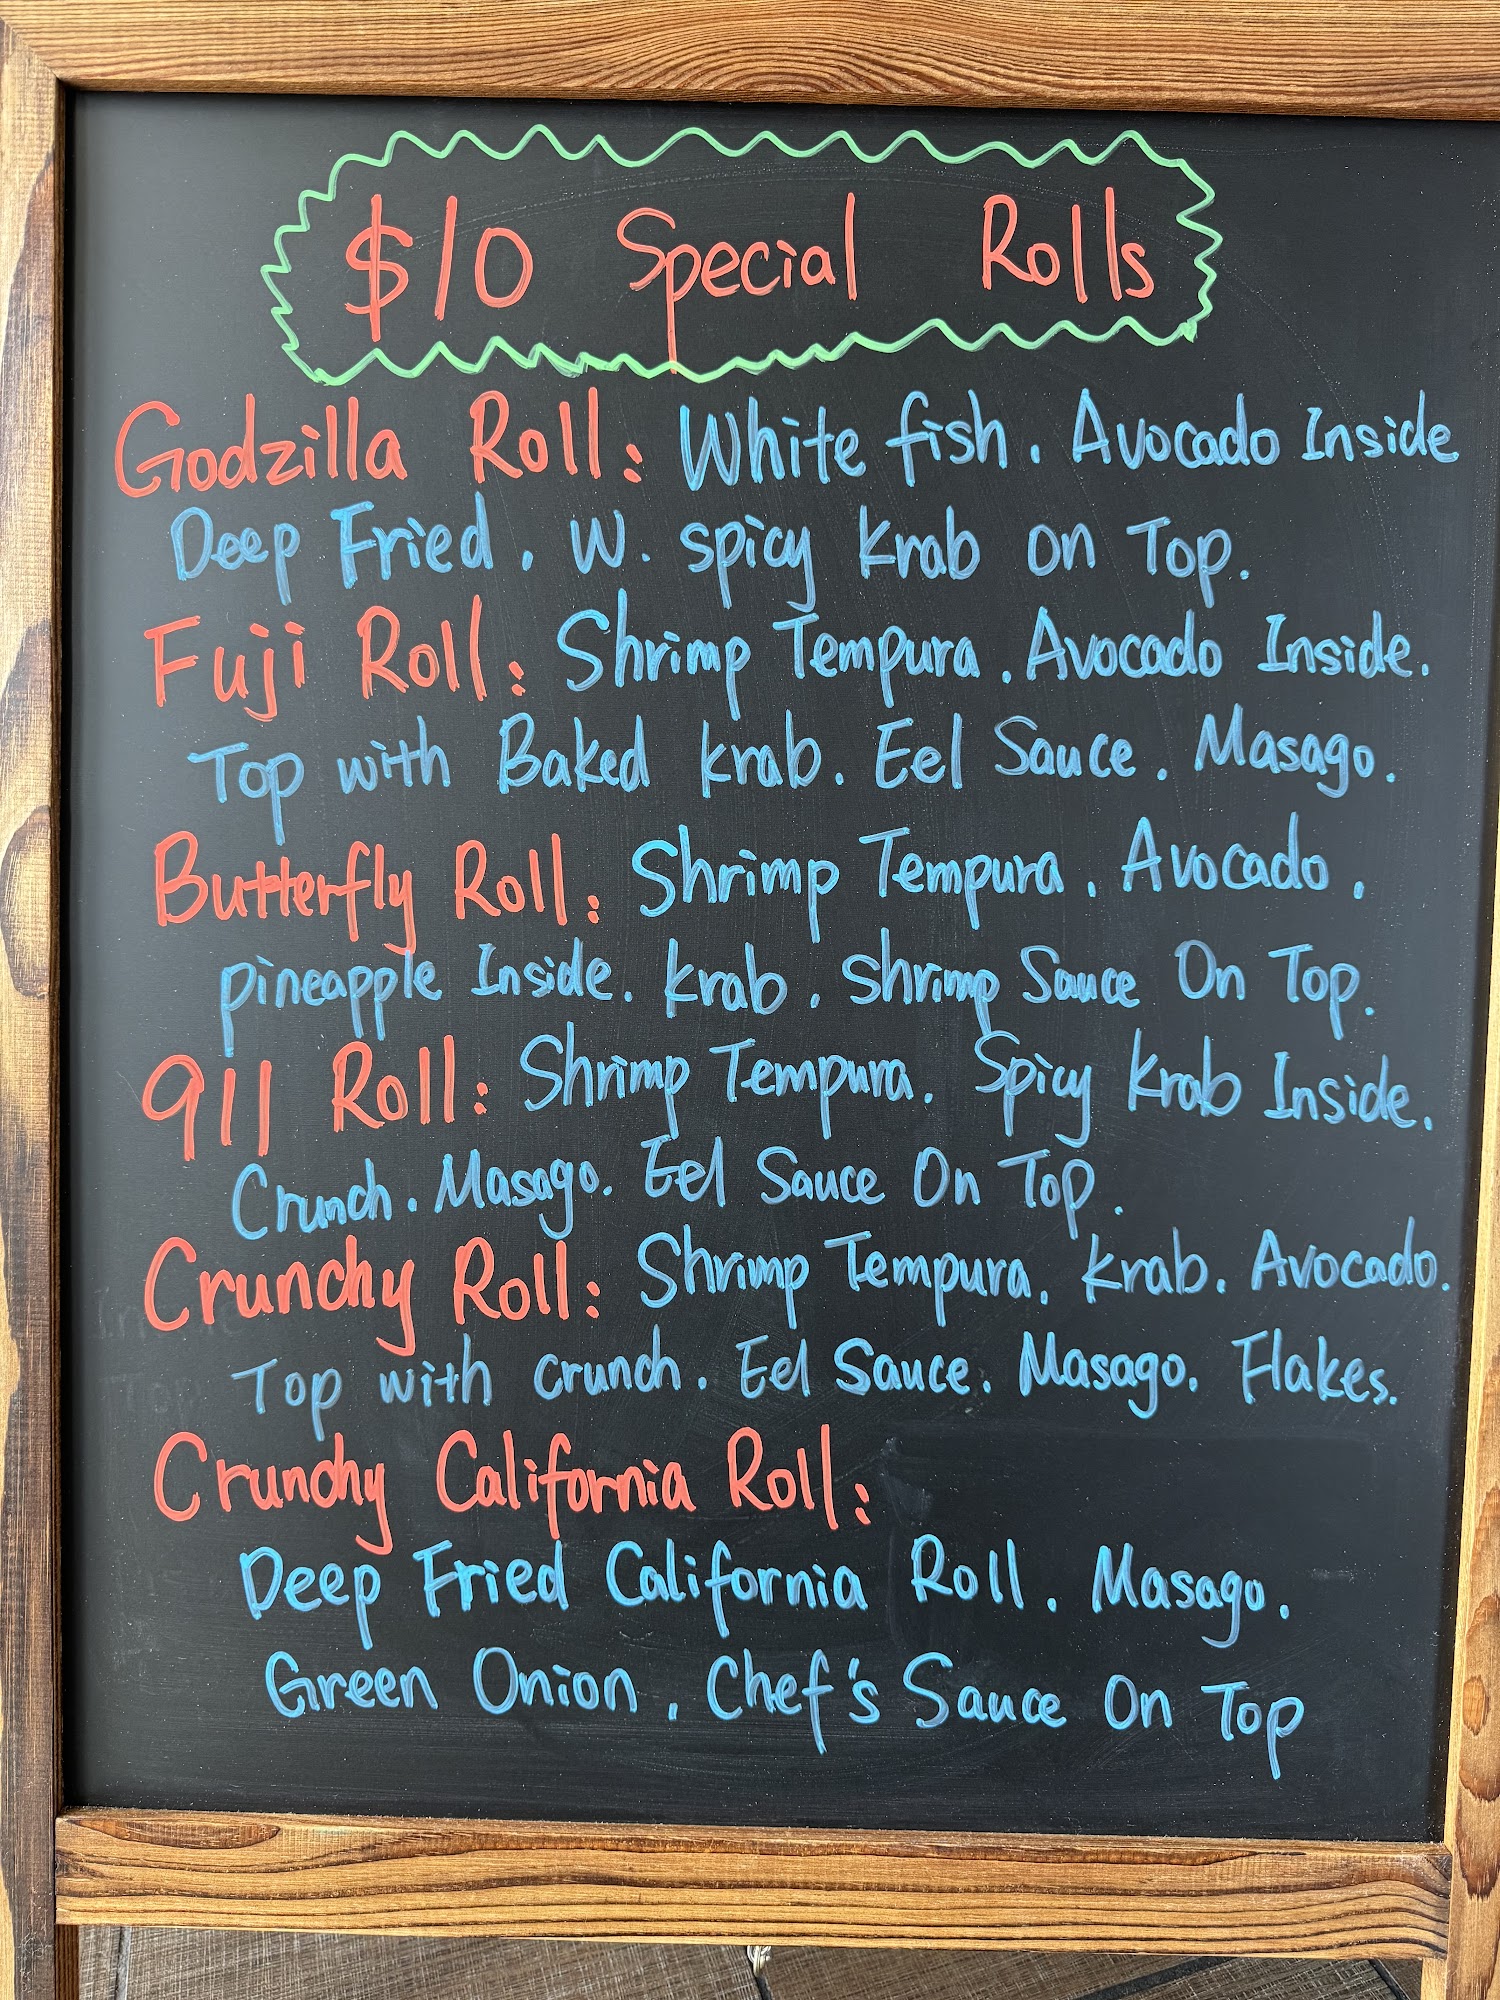 $10 Special Rolls
Godzilla Roll: White fish. Avocado Inside
Deep Fried. W. spicy krab on Top.
Fuji Roll: Shrimp Tempura. Avocado Inside.
Top with Baked krab. Eel Sauce. Masago.
Butterfly Roll: Shrimp Tempura. Avocado.
pineapple Inside. krab. shrimp Sauce On Top.
911 Roll: Shrimp Tempura. Spicy krab Inside.
Crunch. Masago. Eel Sauce On Top.
Crunchy Roll: Shrimp Tempura. krab. Avocado.
Top with crunch. Eel Sauce. Masago. Flakes.
Crunchy California Roll:
Deep Fried California Roll. Masago.
Green Onion. Chef's Sauce On Top